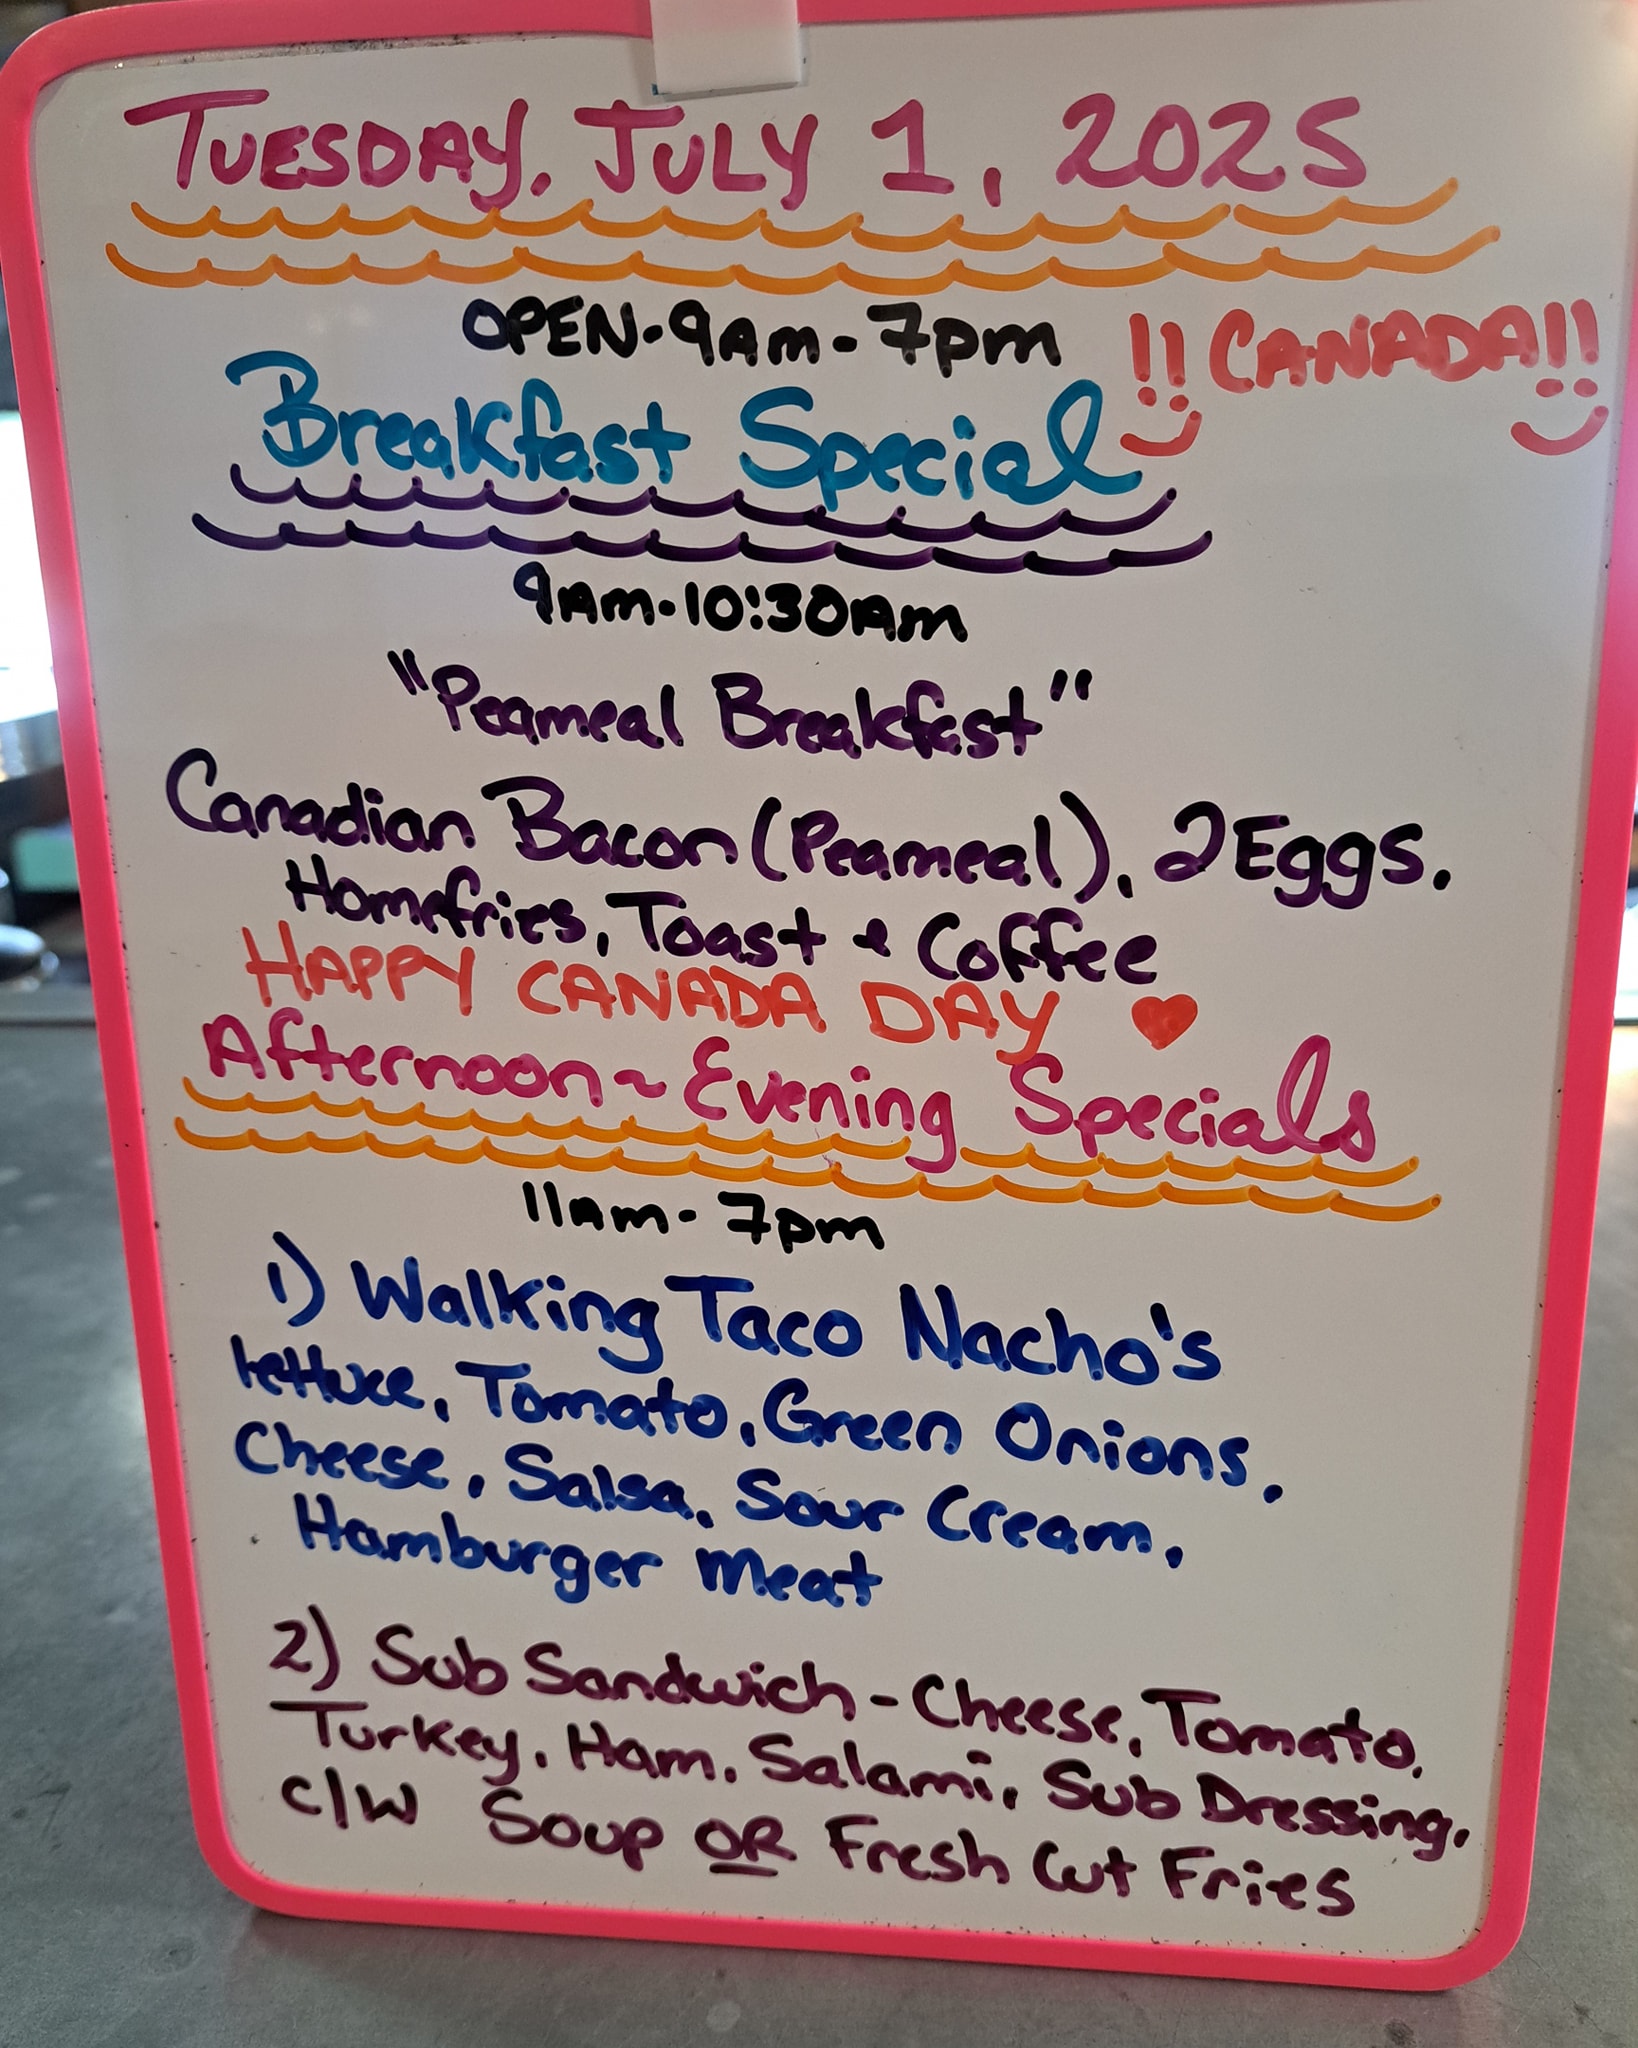 TUESDAY, JULY 1, 2025
OPEN-9AM-7pm
!!CANADA!!
Breakfast Special
9AM-10:30AM
"Peameal Breakfast"
Canadian Bacon (Peameal), 2 Eggs,
Homefries, Toast & Coffee
HAPPY CANADA DAY ♥
Afternoon~Evening Specials
11am-7pm
1) Walking Taco Nacho's
lettuce, Tomato, Green Onions,
Cheese, Salsa, Sour Cream,
Hamburger meat
2) Sub Sandwich - Cheese, Tomato,
Turkey, Ham, Salami, Sub Dressing,
c/w Soup OR Fresh Cut Fries